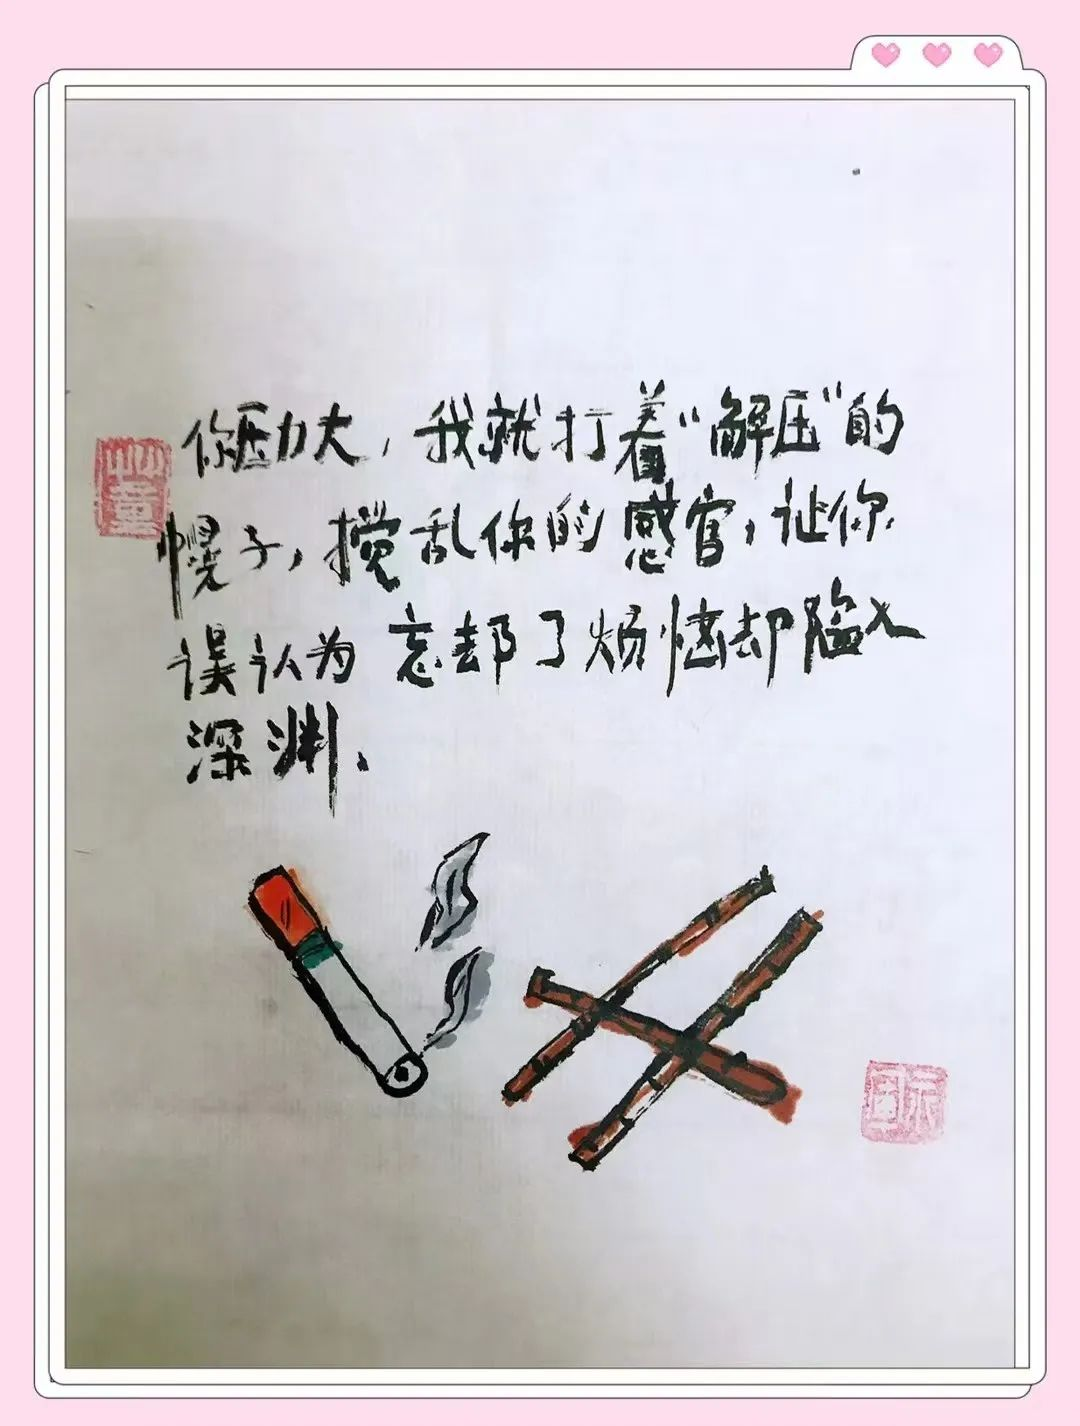 你压力大，我就打着“解压”的
幌子，搅乱你的感官，让你
误认为忘却了烦恼却陷入
深渊、